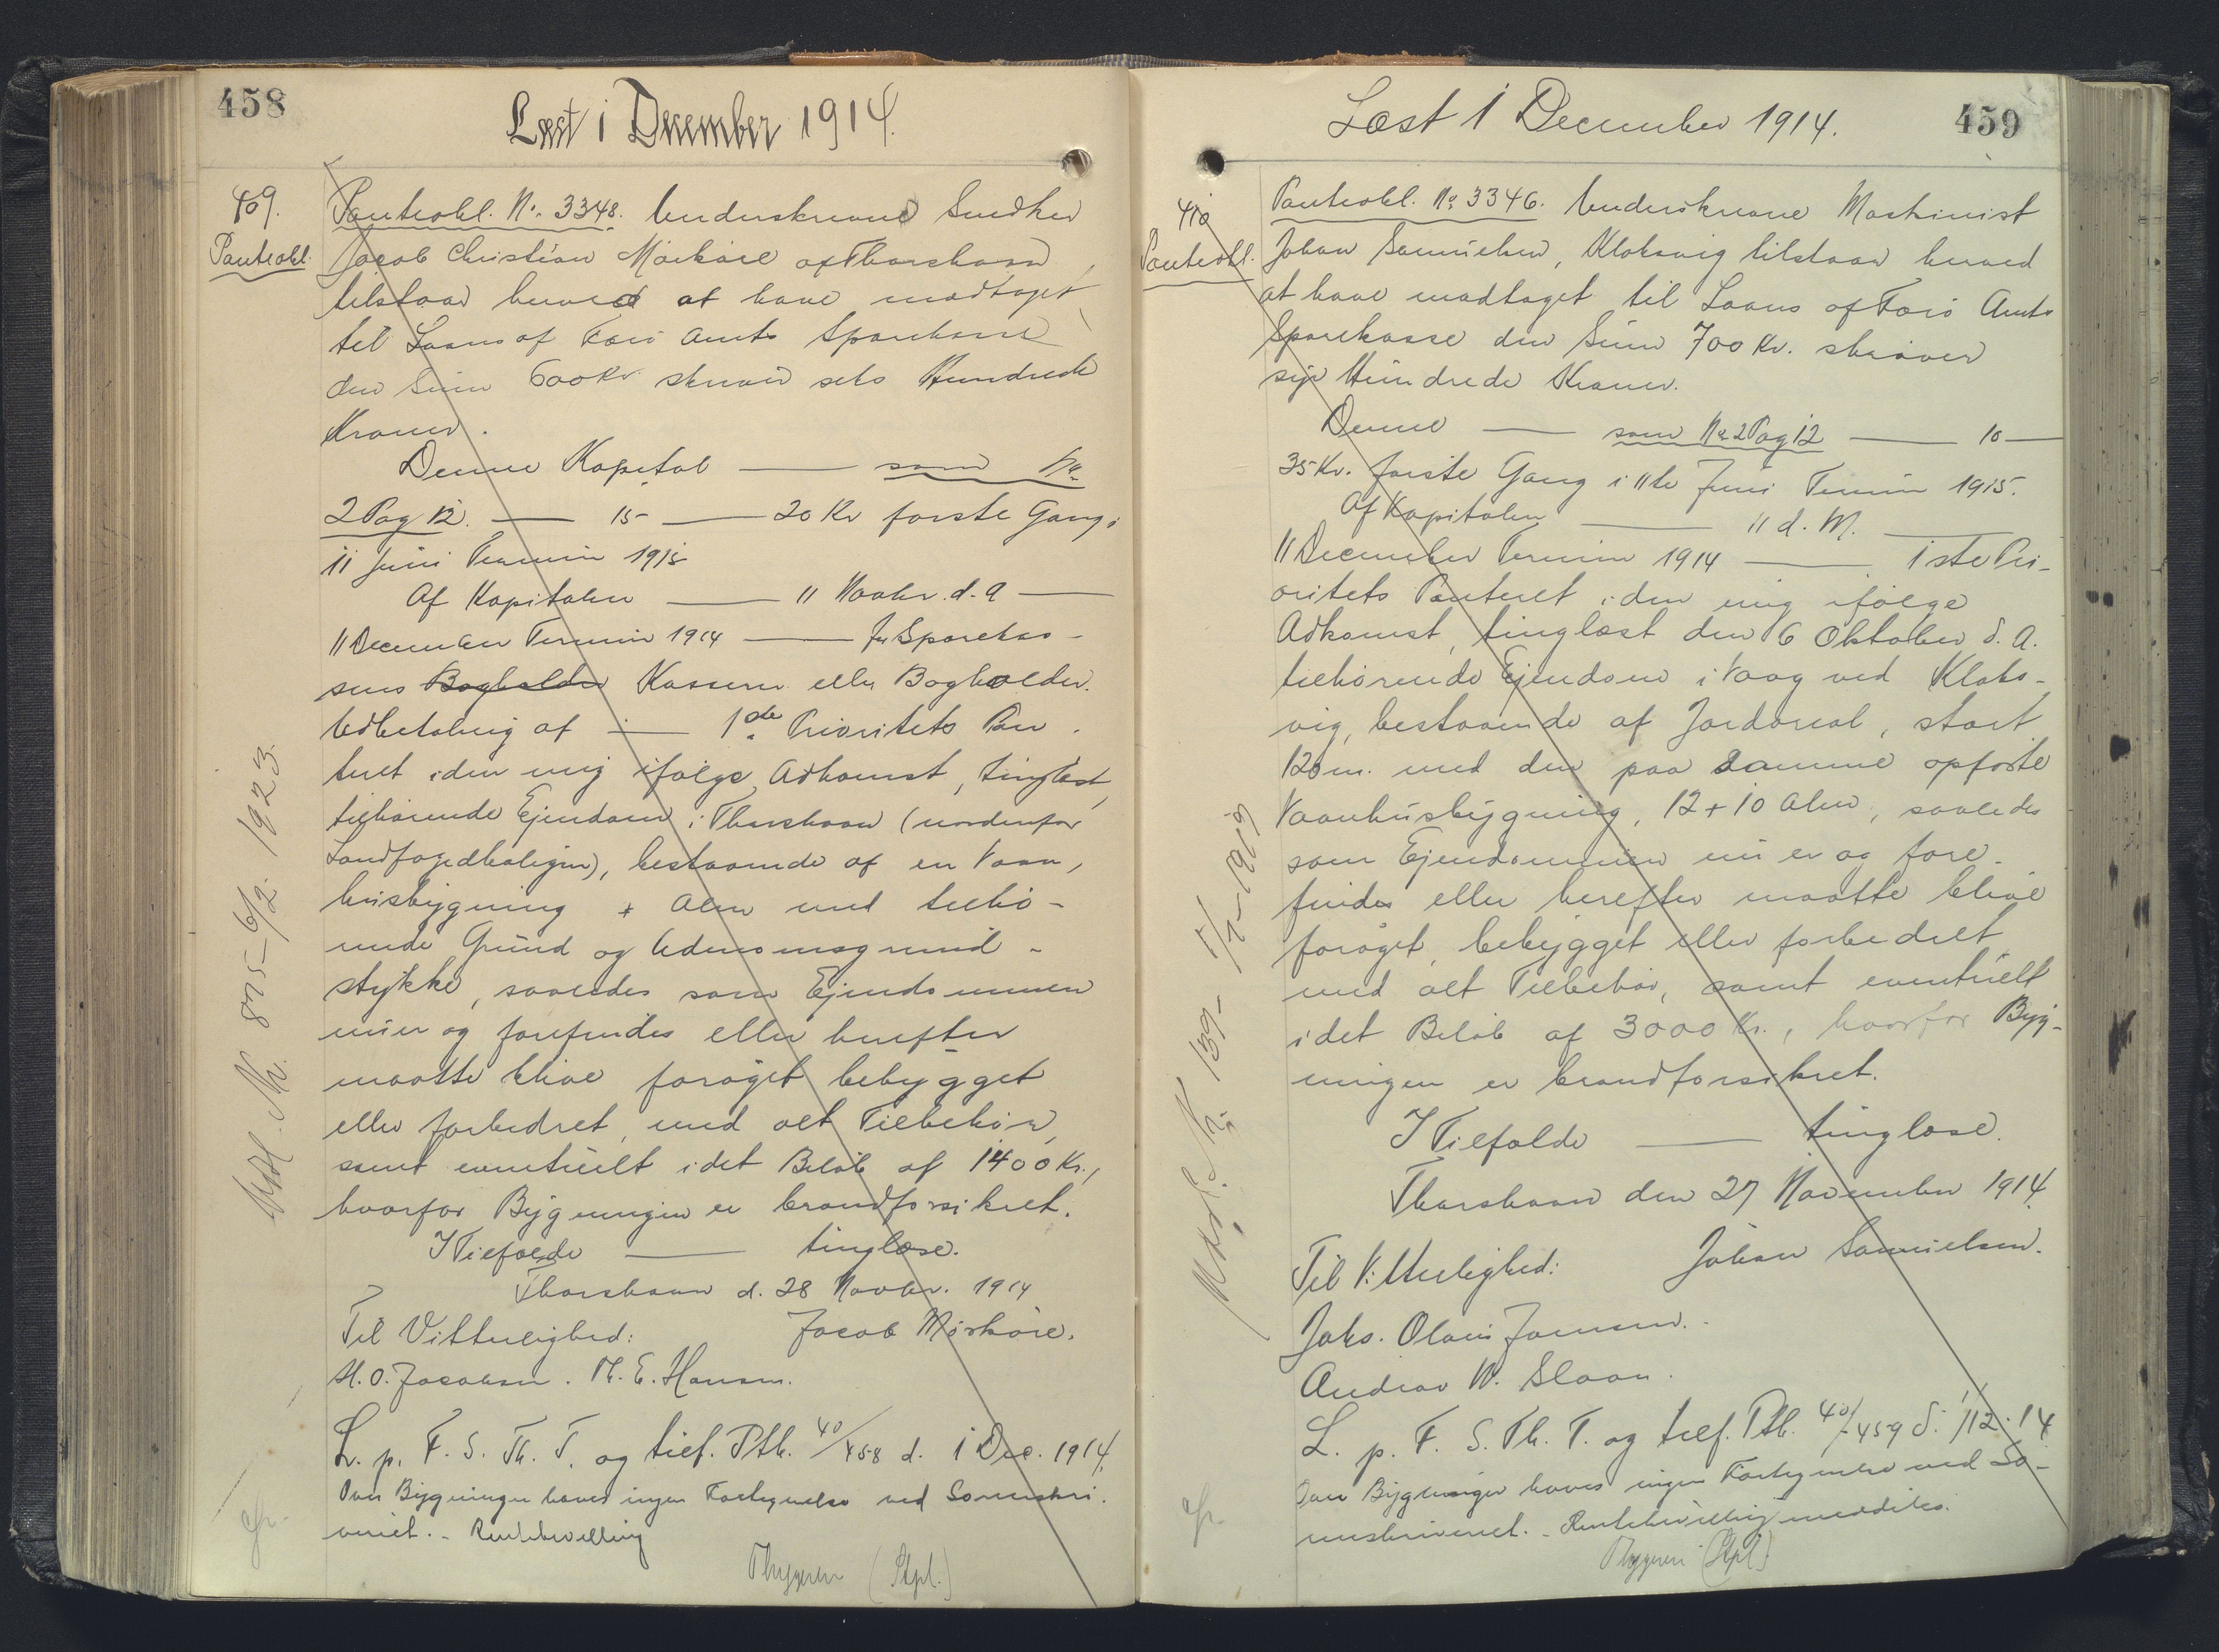 458
Læst i December 1914.
409.
Panteobl.
Panteobl. No. 3348. Underskrevne Snedker
Jacob Christian Mørkøre af Thorshavn,
tilstaar herved at have modtaget
til Laans af Færø Amts Sparekasse
den Sum 600 Kr skriver seks Hundrede
Kroner.
Denne Kapital — som No
2 Pag 12. — 15 — 20 Kr første Gang i
11 Juni Termin 1915
Af Kapitalen — 11 Novbr. d. A —
11 December Termin 1914 — for Sparekas-
sens Bogholder Kasserer eller Bogholder.
Udbetaling af — 1ste Prioritets Pan-
teret i den mig ifølge Adkomst, tinglæst,
tilhørende Ejendom i Thorshavn (nordenfor
Landfogedboligen), bestaaende af en Vaan,
husbygning + Alen med tilhø-
rende Grund og Udenomsgrund-
stykke, saaledes som Ejendommen
nu er og forefindes eller herefter
maatte blive forøget bebygget
eller forbedret, med alt Tilbehør,
samt eventuelt i det Beløb af 1400 Kr.,
hvorfor Bygningen er brandforsikret.
I Tilfælde — tinglæse.
Thorshavn d. 28 Novbr. 1914
Til Vitterlighed: Jacob Mørkøre.
H. O. Jacobsen. M. E. Hansen.
L. p. F. S. Th. T. og tilf. Ptb. 40/458 d. 1 Dec. 1914.
Over Bygningen haves ingen Forsegnelse ved Sorenskri-
veriet. - Rentebevilling
(Stpl.)
Udsl. No. 875 - 6/2. 1923.
cfr.
459
Læst 1 December 1914.
410
Panteobl.
Panteobl. No 3346. Underskrevne Maskinist
Johan Samuelsen, Klaksvig tilstaar herved
at have modtaget til Laans af Færø Amts
Sparekasse den Sum 700 Kr. skriver
syv Hundrede Kroner.
Denne — som No 2 Pag 12 — 10 —
35 Kr. første Gang i 11te Juni Termin 1915.
Af Kapitalen — 11 d. M. —
11 December Termin 1914 — 1ste Pri-
oritets Panteret i den mig ifølge
Adkomst, tinglæst den 6 Oktober d. A.
tilhørende Ejendom i Vaag ved Klaks-
vig, bestaaende af Jordareal, stort
12 m. med den paa samme opførte
Vaanhusbygning, 12 + 10 Alen, saaledes
som Ejendommen nu er og fore-
findes eller herefter maatte blive
forøget, bebygget eller forbedret
med alt Tilbehør, samt eventuelt
i det Beløb af 3000 Kr., hvorfor Byg-
ningen er brandforsikret.
I Tilfælde — tinglæse.
Thorshavn den 27 November 1914.
Til Vitterlighed: Johan Samuelsen.
Jaks. Olavus Joensen.
Andreas W. Slaan.
L. p. F. S. Th. T. og tilf. Ptb. 40/459 d. 1/12.14
Over Bygningen haves ingen Forsegnelse ved So-
renskriveriet. - Rentebevilling meddeles.
(Stpl.)
Udsl. No. 139 -
cfr.